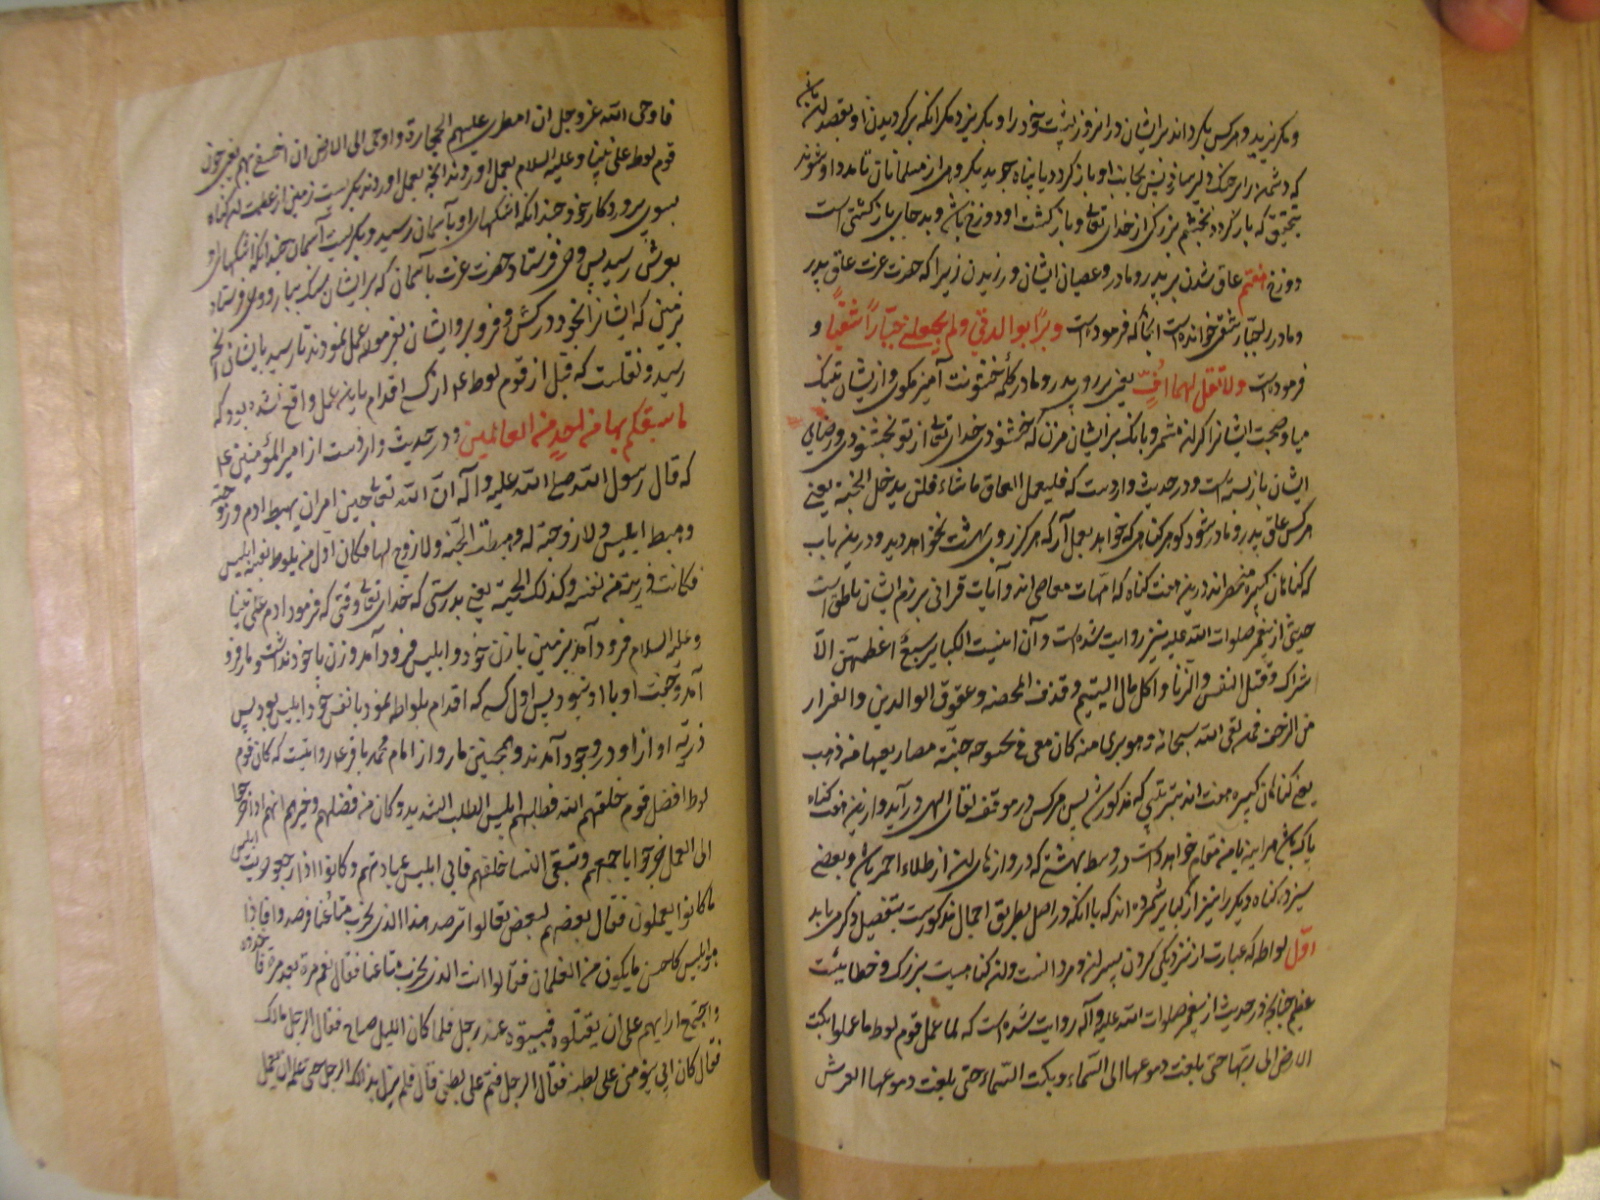 و مکریزید و هرکس بکرداند برایشان در انروز پشت خود را و بکریزد مکر انکه برکردیدن او بقصد ان باشد
که دشمن را بر جنک دلیر سازد پس بجانب او باز کردد یا پناه جوید بکروهی از مسلمانان تا مدد او شوند
بتحقیق که باز کردد بخشم بزرکی از خدای تعالی و باز کشت او دوزخ باشد و بد جای باز کشتی است
دوزخ هفتم عاق شدن بر پدر و مادر و عصیان ایشان ورزیدن زیرا که حضرت عزت عاق پدر
و مادر را جبار شقی خوانده است انجا که فرموده است وبرّا بوالدتی ولم یجعلنی جبّاراً شقیّاً و
فرموده است ولا تقل لهما افٍّ یعنی بر روی پدر و مادر کلمه خشونت آمیز مکوی و از ایشان تنک
میا و صحبت ایشانرا کران مشمر و بانک بر ایشان مزن که خشنودی خدای تعالی از تو بخشنودی و رضای
ایشان باز بسته است و در حدیث وارد است که فلیعمل العاق ما شاء فلن یدخل الجنة یعنی
هرکس عاق پدر و مادر شود کو هر کناهی که خواهد بعمل آر که هرکز روی بهشت نخواهد دید و درین باب
که کناهان کبیره منحصراند درین هفت کناه که امهات معاصی اند و آیات قرانی بر ذم ایشان ناطق است
حدیثی از پیغمبر صلوات الله علیه نیز روایت شده است و آن اینست الکبایر سبع اعظمهن الا
شراک و قتل النفس والزنا و اکل مال الیتیم و قذف المحصنه و عقوق الوالدین والفرار
من الزحف فمن لقی الله سبحانه و هو بری منه کان معی فی بحبوحه جنّة مصاریعها من ذهب
یعنی کناهان کبیره هفت اند بترتیبی که مذکور شد پس هرکس در موقف لقای الهی در آید و ازین هفت کناه
پاک باشد هر اینه با من مقام خواهد داشت در وسط بهشتی که دروازهای ان از طلاء احمر باشد و بعضی
سیزده کناه دیکر را نیز از کبایر شمرده اند که با انکه در اصل بطریق اجمال مذکور است بتفصیل ذکر می یابد
اوّل لواطه که عبارت از نزدیکی کردن پسران و مردانست و ان کناهیست بزرک و خطائیست
عظیم چنانچه در حدیث از پیغمبر صلوات الله علیه و آله روایت شده است که لما عمل قوم لوط ما عملوا بکت
الارض الی ربّها حتی بلغت دموعها الی السماء و بکت السماء حتی بلغت دموعها العرش
فاوحی الله عز وجل ان امطری علیهم الحجارة و اوحی الی الارض ان اخسفی بهم یعنی چون
قوم لوط علی نبینا و علیه السلام بعمل اوردند انچه بعمل اوردند بکریست زمین از عظمت ان کناه
بسوی پروردکار خود چندانکه اشکهای او بآسمان رسید و بکریست آسمان چندانکه اشکهای او
بعرش رسید پس وحی فرستاد حضرت عزت بآسمان که بر ایشان سنک ببار و وحی فرستاد
بزمین که ایشانرا بخود درکش و فرو بر و ایشان بفرموده عمل نمودند تا رسید بایشان انچه
رسید و نقلست که قبل از قوم لوط ع از کسی اقدام باین عمل واقع نشده بود که
ما سبقکم بها من احدٍ من العالمین و در حدیث وارد است از امیر المؤمنین ع
که قال رسول الله صلی الله علیه و آله انّ الله تعالی حین امر ان یهبط ادم و زوجته
وهبط ابلیس ولا زوجة له وهبطت الحیّة ولا زوج لها فکان اوّل من یلوط بنفسه ابلیس
فکانت ذریته من نفسه وکذلک الحیّة یعنی بدرستی که خدای تعالی وقتی که فرمود ادم علی نبینا
و علیه السلام فرود آمد بزمین با زن خود و ابلیس فرود آمد و زن با خود نداشت و مار فرو
آمد و جفت او با او نبود پس اول کسی که اقدام بلواطه نمود با نفس خود ابلیس بود پس
ذریّه او از او در وجود آمدند و همچنین مار و از امام محمد باقر ع روایتست که کان قوم
لوط افضل قوم خلقهم الله فطلبهم ابلیس الطلب الشدید و کان من فضلهم و خیرهم انهم اذا خرجوا
الی العمل خرجوا باجمعهم و تبقی النسا خلفهم فاتی ابلیس عبادتهم و کانوا اذا رجعوا خرب ابلیس
ما کانوا یعملون فقال بعضهم لبعض تعالوا نرصد هذا الذی یخرب متاعنا فرصدوا فاذا
هو ابلیس کاحسن ما یکون من الغلمان فقالوا انت الذی یخرب متاعنا فقال نعم مرة بعد مرة فاخذوه
واجتمع ارایهم علی ان یقتلوه فبیتوه عند رجل فلما کان اللیل صاح فقال الرجل مالک
فقال کان ابی ینومنی علی بطنه فقال الرجل فنم علی بطنی قال فلم یزل بذلک الرجل حتی علمه ان یعمل